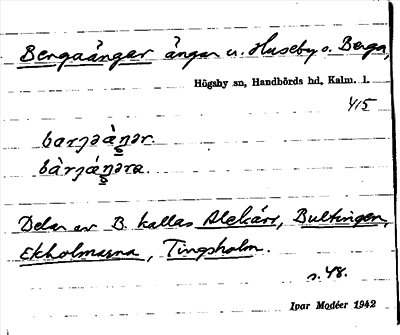 Bergaängar ängar u. Huseby o. Berga,
Högsby sn, Handbörds hd, Kalm. l.
415
Delar av B. kallas Alekärr, Bultingen,
Ekholmarna, Tingsholm.
s. 48.
Ivar Modéer 1942